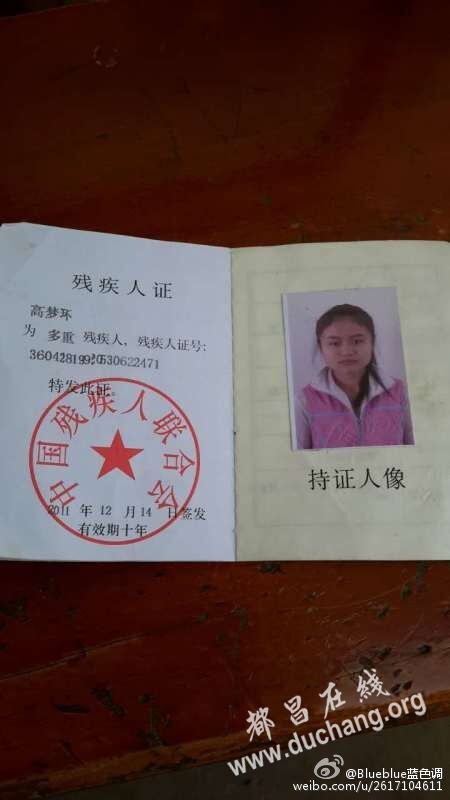 残疾人证
高梦环
为 多重 残疾人，残疾人证号：
特发此证。
中国残疾人联合会
2011 年 12 月 14 日签发
有效期十年
持证人像
都昌在线
www.duchang.org
@Blueblue蓝色调
weibo.com/u/2617104611